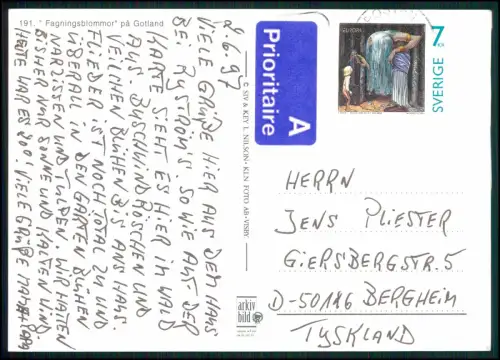 191. " Fagningsblommor" på Gotland
2.6.97
VIELE GRÜßE HIER AUS DEM HAUS
BEI RYSTRÖM'S SO WIE AUF DER
KARTE SIEHT ES HIER IM WALD
AUS. BUSCHWINDRÖSCHEN UND
VEILCHEN BLÜHEN BIS ANS HAUS.
FLIEDER IST NOCH TOTAL ZU UND
ÜBERALL IN DEN GÄRTEN BLÜHEN
NARZISSEN UND TULPEN. WIR HATTEN
BISHER NUR SONNE UND KALTEN WIND.
HEUTE WAR ES 20°. VIELE GRÜßE
© SIV & KEY L. NILSON • KLN FOTO AB • VISBY
arkiv
bild
Prioritaire
A
EUROPA
7
KR
SVERIGE
HERRN
JENS PLIESTER
GIERSBERGSTR. 5
D-50126 BERGHEIM
TYSKLAND